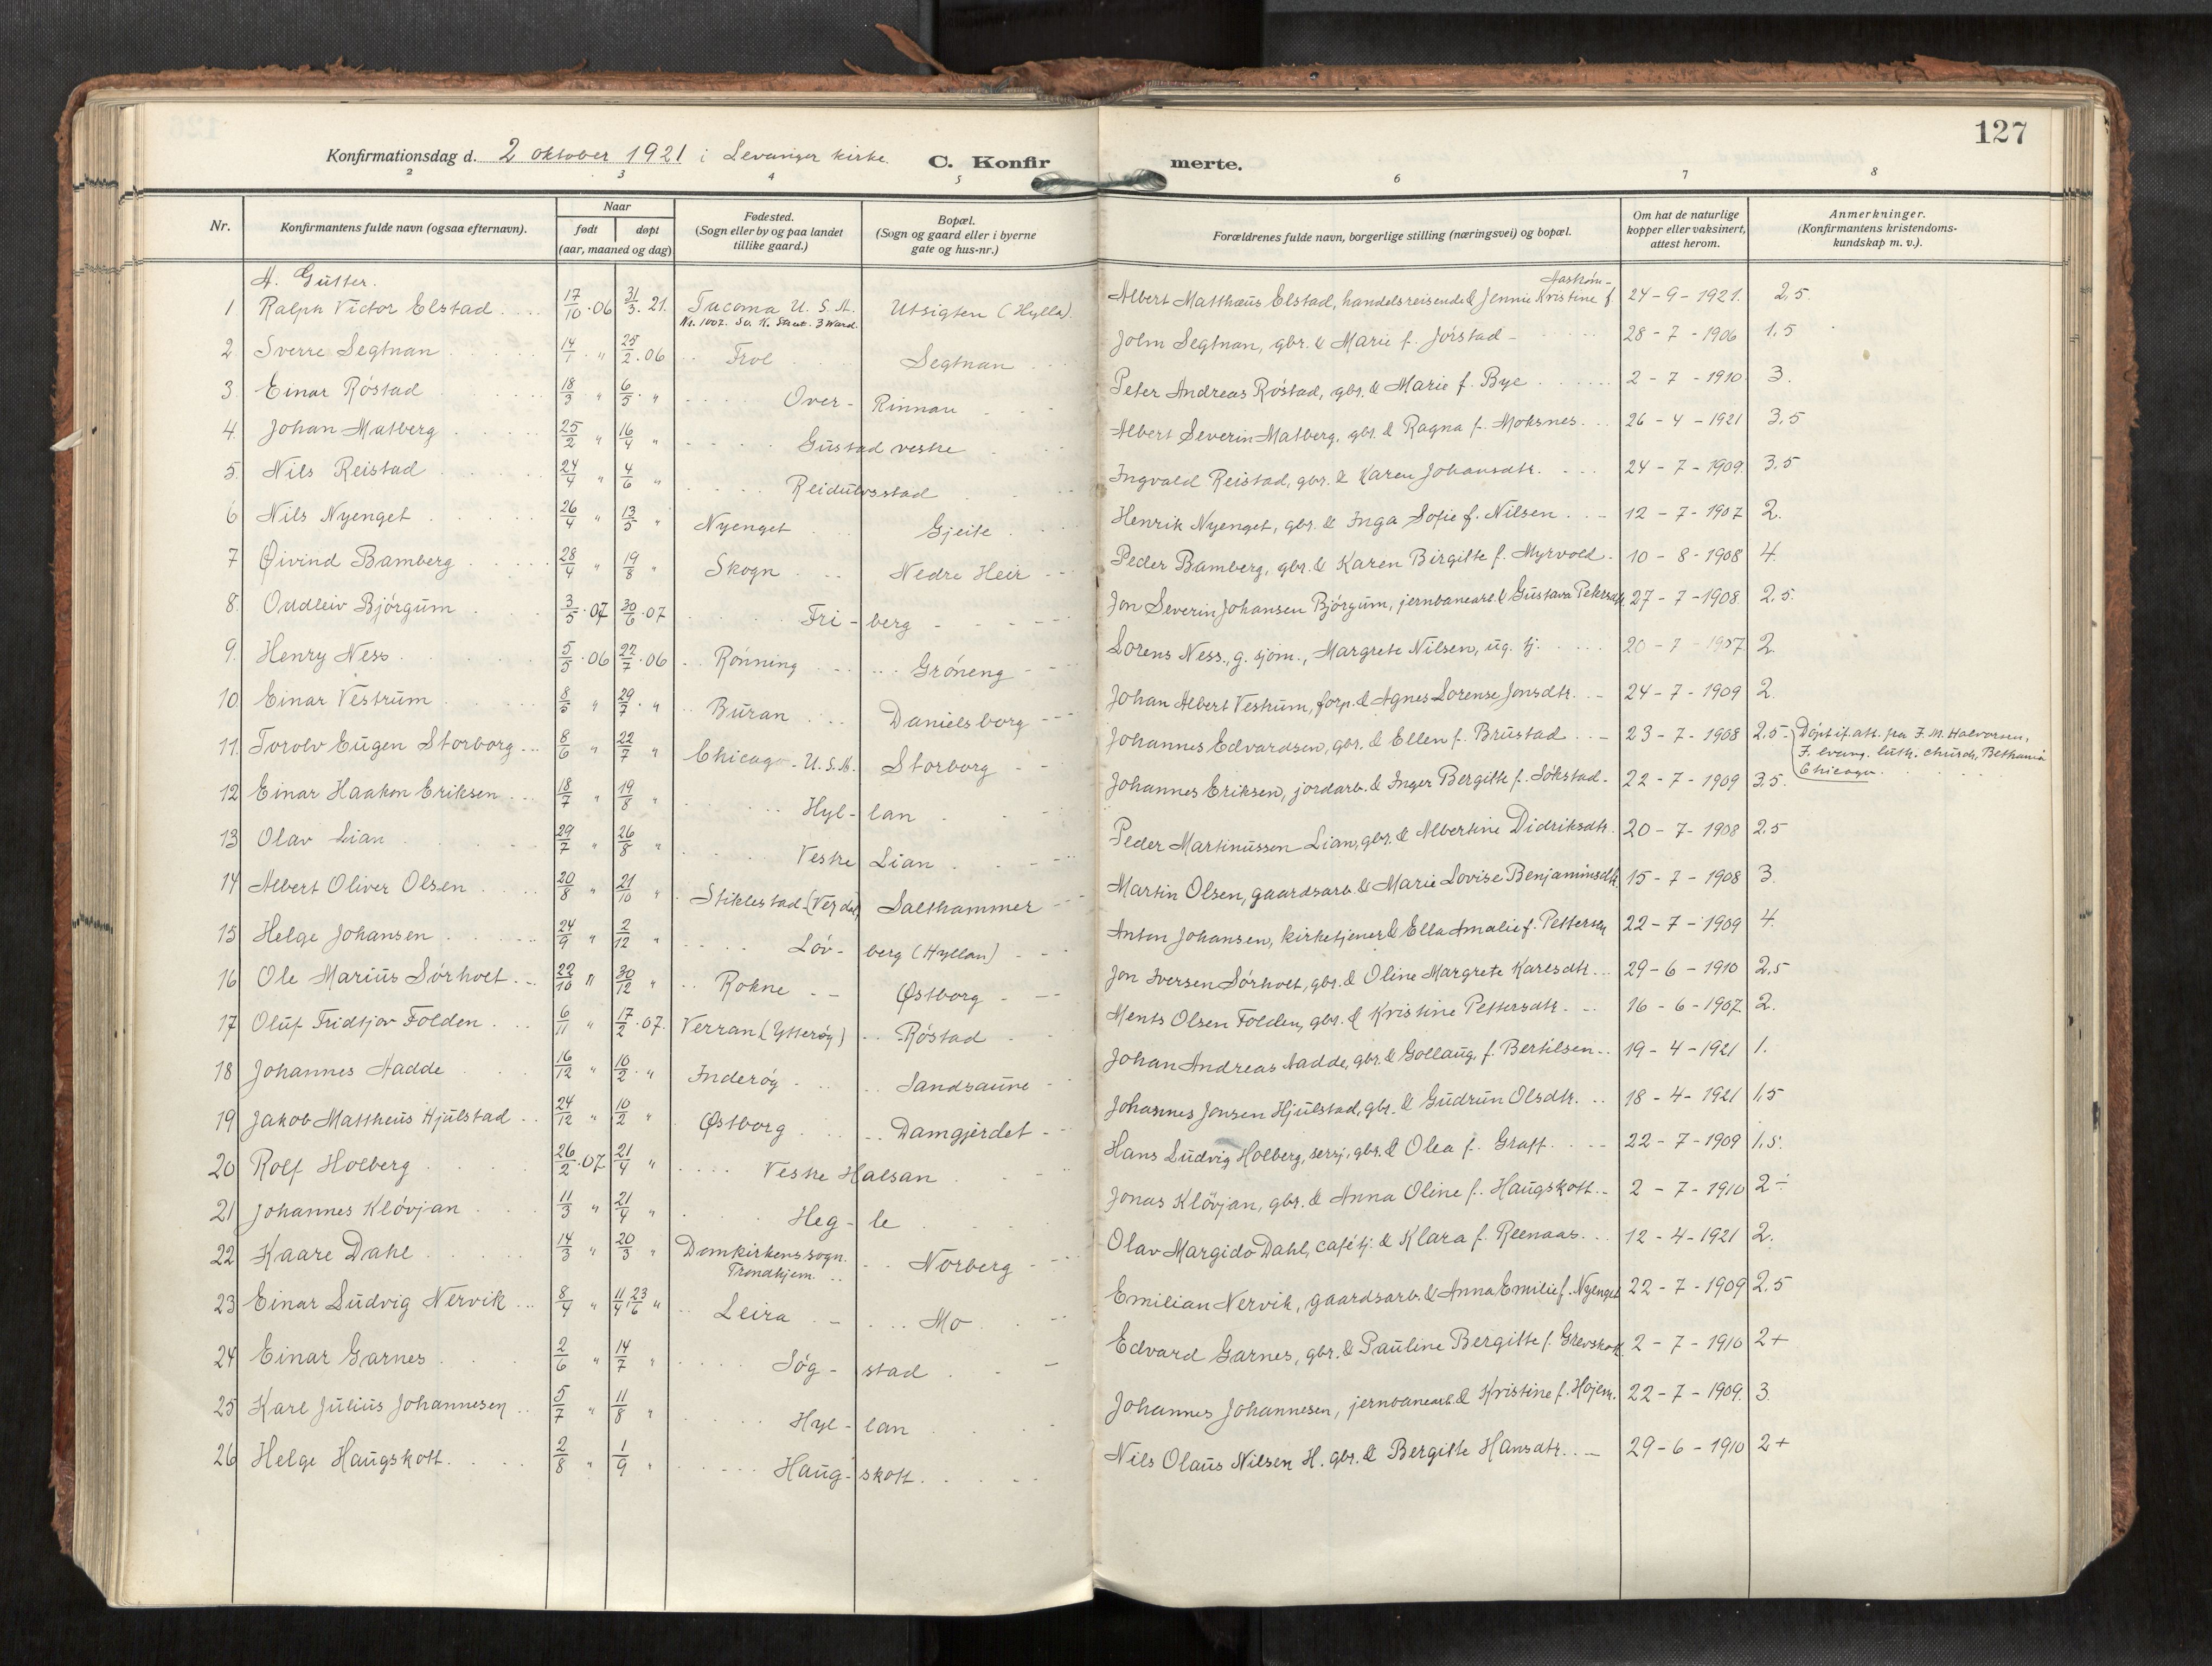 127
Konfirmationsdag d. 2 oktober 1921 i Levanger kirke. C. Konfirmerte.
2 3 4 5 6 7 8
Nr. Konfirmantens fulde navn (ogsaa efternavn). Naar født døpt (aar, maaned og dag) Fødested. (Sogn eller by og paa landet tillike gaard.) Bopæl. (Sogn og gaard eller i byerne gate og hus-nr.) Forældrenes fulde navn, borgerlige stilling (næringsvei) og bopæl. Om hat de naturlige kopper eller vaksinert, attest herom. Anmerkninger. (Konfirmantens kristendomskundskap m. v.).
A. Gutter.
1 Ralph Victor Elstad 17/10 06 31/3 21. Tacoma U. S. A. No. 1007. So. K. Street. 3 Ward. Utsigten (Hylla). Albert Matthæus Elstad, handelsreisende & Jennie Kristine f. 24-9-1921. 2,5.
2 Sverre Segtnan 14/1 " 25/2 06 Frol Segtnan John Segtnan, gbr. & Marie f. Jørstad 28-7-1906 1,5
3 Einar Röstad 18/3 " 6/5 " Over-Rinnan Peter Andreas Röstad, gbr. & Marie f. Bye 2-7-1910 3.
4. Johan Matberg 25/2 " 16/4 " Gustad vestre Albert Severin Matberg, gbr. & Ragna f. Moksnes 26-4-1921 3,5
5. Nils Reistad 24/4 " 4/6 " Reidulvsstad Ingvald Reistad, gbr. & Karen Johansdtr. 24-7-1909. 3,5
6 Nils Nyenget 26/4 " 13/5 " Nyenget Gjeite Henrik Nyenget, gbr. & Inga Sofie f. Nilsen 12-7-1907 2.
7 Øivind Bamberg 28/4 " 19/8 " Skogn Nedre Heir Peder Bamberg, gbr. & Karen Birgitte f. Myrvold 10-8-1908 4.
8. Oddleiv Bjørgum 3/5 07 30/6 07 Fri-berg Jon Severin Johansen Bjørgum, jernbanearb. & Gustava Petersdtr. 27-7-1908. 2,5.
9. Henry Ness 5/5 06 22/7 06 Rønning Grøneng Lorens Ness, g. sjøm., Margrete Nilsen, ug. tj. 20-7-1907. 2.
10. Einar Vestrum " 29/7 " Buran Danielsborg Johan Albert Vestrum, forp. & Agnes Lorense Jonsdtr. 24-7-1909 2.
11. Torolv Eugen Storborg 8/6 " 22/7 " Chicago U.S.A. Storborg Johannes Edvardsen, gbr. & Ellen f. Brustad 23-7-1908 2,5 Døpt if. att. fra F. M. Halvorsen, F. evang. luth. church, Bethania Chicago.
12 Einar Haakon Eriksen 18/7 " 19/8 " Hyl-lan Johannes Eriksen, jordarb. & Inger Bergitte f. Sökstad 22-7-1909 3,5.
13 Olav Lian 29/7 " 26/8 " Vestre Lian Peder Martinussen Lian, gbr. & Albertine Didriksdtr. 20-7-1908 2,5
14 Albert Oliver Olsen 20/8 " 21/10 " Stiklestad (Verdal) Salthammer Martin Olsen, gaardsarb. & Marie Lovise Benjaminsdtr. 15-7-1908 3.
15 Helge Johansen 24/9 " 2/12 " Løv-berg (Hyllan) Anton Johansen, kirketjener & Ella Amalie f. Pettersen 22-7-1909 4.
16 Ole Marius Sørholt 22/10 " 30/12 " Rokne Østborg Jon Iversen Sørholt, gbr. & Oline Margrete Karlsdtr. 29-6-1910 2,5
17 Oluf Fridtjov Folden 6/11 " 17/2 07. Verran (Ytterøy) Röstad Ments Olsen Folden, gbr. & Kristine Pettersdtr. 16-6-1907. 2.
18 Johannes Aadde 16/12 " 10/2 " Inderøy Sandsaune Johan Andreas Aadde, gbr. & Gollaug f. Bertilsen 19-4-1921 1.
19 Jakob Mattheus Hjulstad 24/12 " 10/2 " Østborg Damgjerdet Johannes Jonsen Hjulstad, gbr. & Gudrun Olsdtr. 18-4-1921 1,5
20 Rolf Holberg 26/2 07 21/4 " Vestre Halsan Hans Ludvig Holberg, sersj., gbr. & Olea f. Graff 22-7-1909 1,5.
21 Johannes Kløvjan 11/3 " 21/4 " Heg-le Jonas Klövjan, gbr. & Anna Oline f. Haugskott 2-7-1910 2÷
22 Kaare Dahl 14/3 " 20/3 " Domkirkens sogn. Trondhjem Norberg Olav Margido Dahl, cafétj. & Klara f. Reenaas 12-4-1921 2.
23 Einar Ludvig Nervik 8/4 " 11/4, 23/6 " Leira Mo Emilian Nervik, gaardsarb. & Anna Emilie f. Nyenget 22-7-1909 2,5
24 Einar Garnes 2/6 " 14/7 " Søg-stad Edvard Garnes, gbr. & Pauline Bergitte f. Grevskott 2-7-1910 2+
25 Karl Julius Johannesen 5/7 " 11/8 " Hyl-lan Johannes Johannesen, jernbanearb. & Kristine f. Hojem. 22-7-1909. 3.
26 Helge Haugskott 2/8 " 1/9 " Haug-skott Nils Olaus Nilsen H. gbr. & Bergitte Hansdtr. 29-6-1910 2+